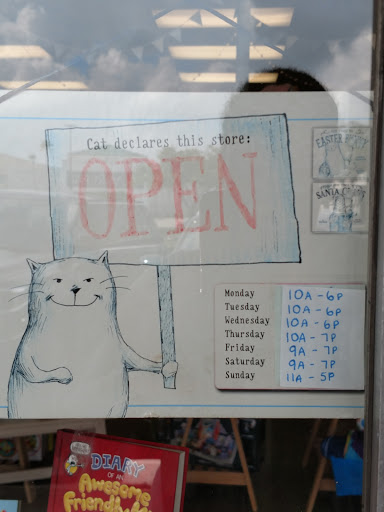 Cat declares this store:
OPEN
EASTER
SANTA
Monday 10A - 6P
Tuesday 10A - 6P
Wednesday 10A - 6P
Thursday 10A - 7P
Friday 9A - 7P
Saturday 9A - 7P
Sunday 11A - 5P
DIARY
OF AN
Awesome
Friendly